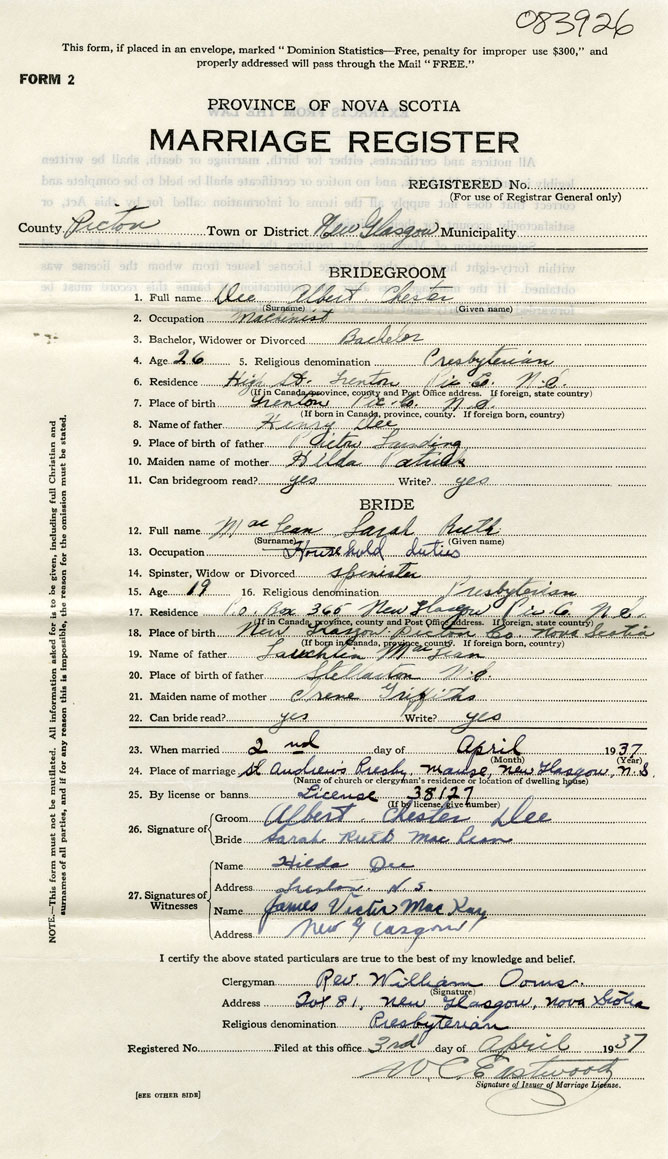 083926
This form, if placed in an envelope, marked "Dominion Statistics—Free, penalty for improper use $300," and
properly addressed will pass through the Mail "FREE."
FORM 2
PROVINCE OF NOVA SCOTIA
MARRIAGE REGISTER
REGISTERED No.
(For use of Registrar General only)
County Picton Town or District New Glasgow Municipality
BRIDEGROOM
1. Full name Dee Albert Chester
(Surname) (Given name)
2. Occupation Machinist
3. Bachelor, Widower or Divorced Bachelor
4. Age 26 5. Religious denomination Presbyterian
6. Residence High St. Trenton Pic Co. N.S.
(If in Canada, province, county and Post Office address. If foreign, state country)
7. Place of birth Trenton Pic Co. N.S.
(If born in Canada, province, county. If foreign born, country)
8. Name of father Henry Dee
9. Place of birth of father Pictou Landing
10. Maiden name of mother Hilda
11. Can bridegroom read? yes Write? yes
BRIDE
12. Full name MacLean Sarah Ruth
(Surname) (Given name)
13. Occupation Household duties
14. Spinster, Widow or Divorced spinister
15. Age 19 16. Religious denomination Presbyterian
17. Residence P.O. Box 365 New Glasgow Pic Co. N.S.
(If in Canada, province, county and Post Office address. If foreign, state country)
18. Place of birth New Glasgow Picton Co. Nova Scotia
(If born in Canada, province, county. If foreign born, country)
19. Name of father MacLean
20. Place of birth of father Stellarton N.S.
21. Maiden name of mother Irene Griffiths
22. Can bride read? yes Write? yes
23. When married 2nd day of April 1937
(Month) (Year)
24. Place of marriage St Andrew's Presby. manse, New Glasgow, N.S.
(Name of church or clergyman's residence or location of dwelling house)
25. By license or banns License 38127
(If by license, give number)
26. Signature of Groom Albert Chester Dee
Bride Sarah Ruth MacLean
27. Signatures of Witnesses
Name Hilda Dee
Address Trenton. N.S.
Name James Victor MacKay
Address New Glasgow
I certify the above stated particulars are true to the best of my knowledge and belief.
Clergyman Rev. William Ooms.
(Signature)
Address Box 81, New Glasgow, Nova Scotia
Religious denomination Presbyterian
Registered No. Filed at this office 3rd day of April 1937
W C Eastwood
Signature of Issuer of Marriage License.
[SEE OTHER SIDE]
NOTE.—This form must not be mutilated. All information asked for is to be given, including full Christian and
surnames of all parties, and if for any reason this is impossible, the reason for the omission must be stated.